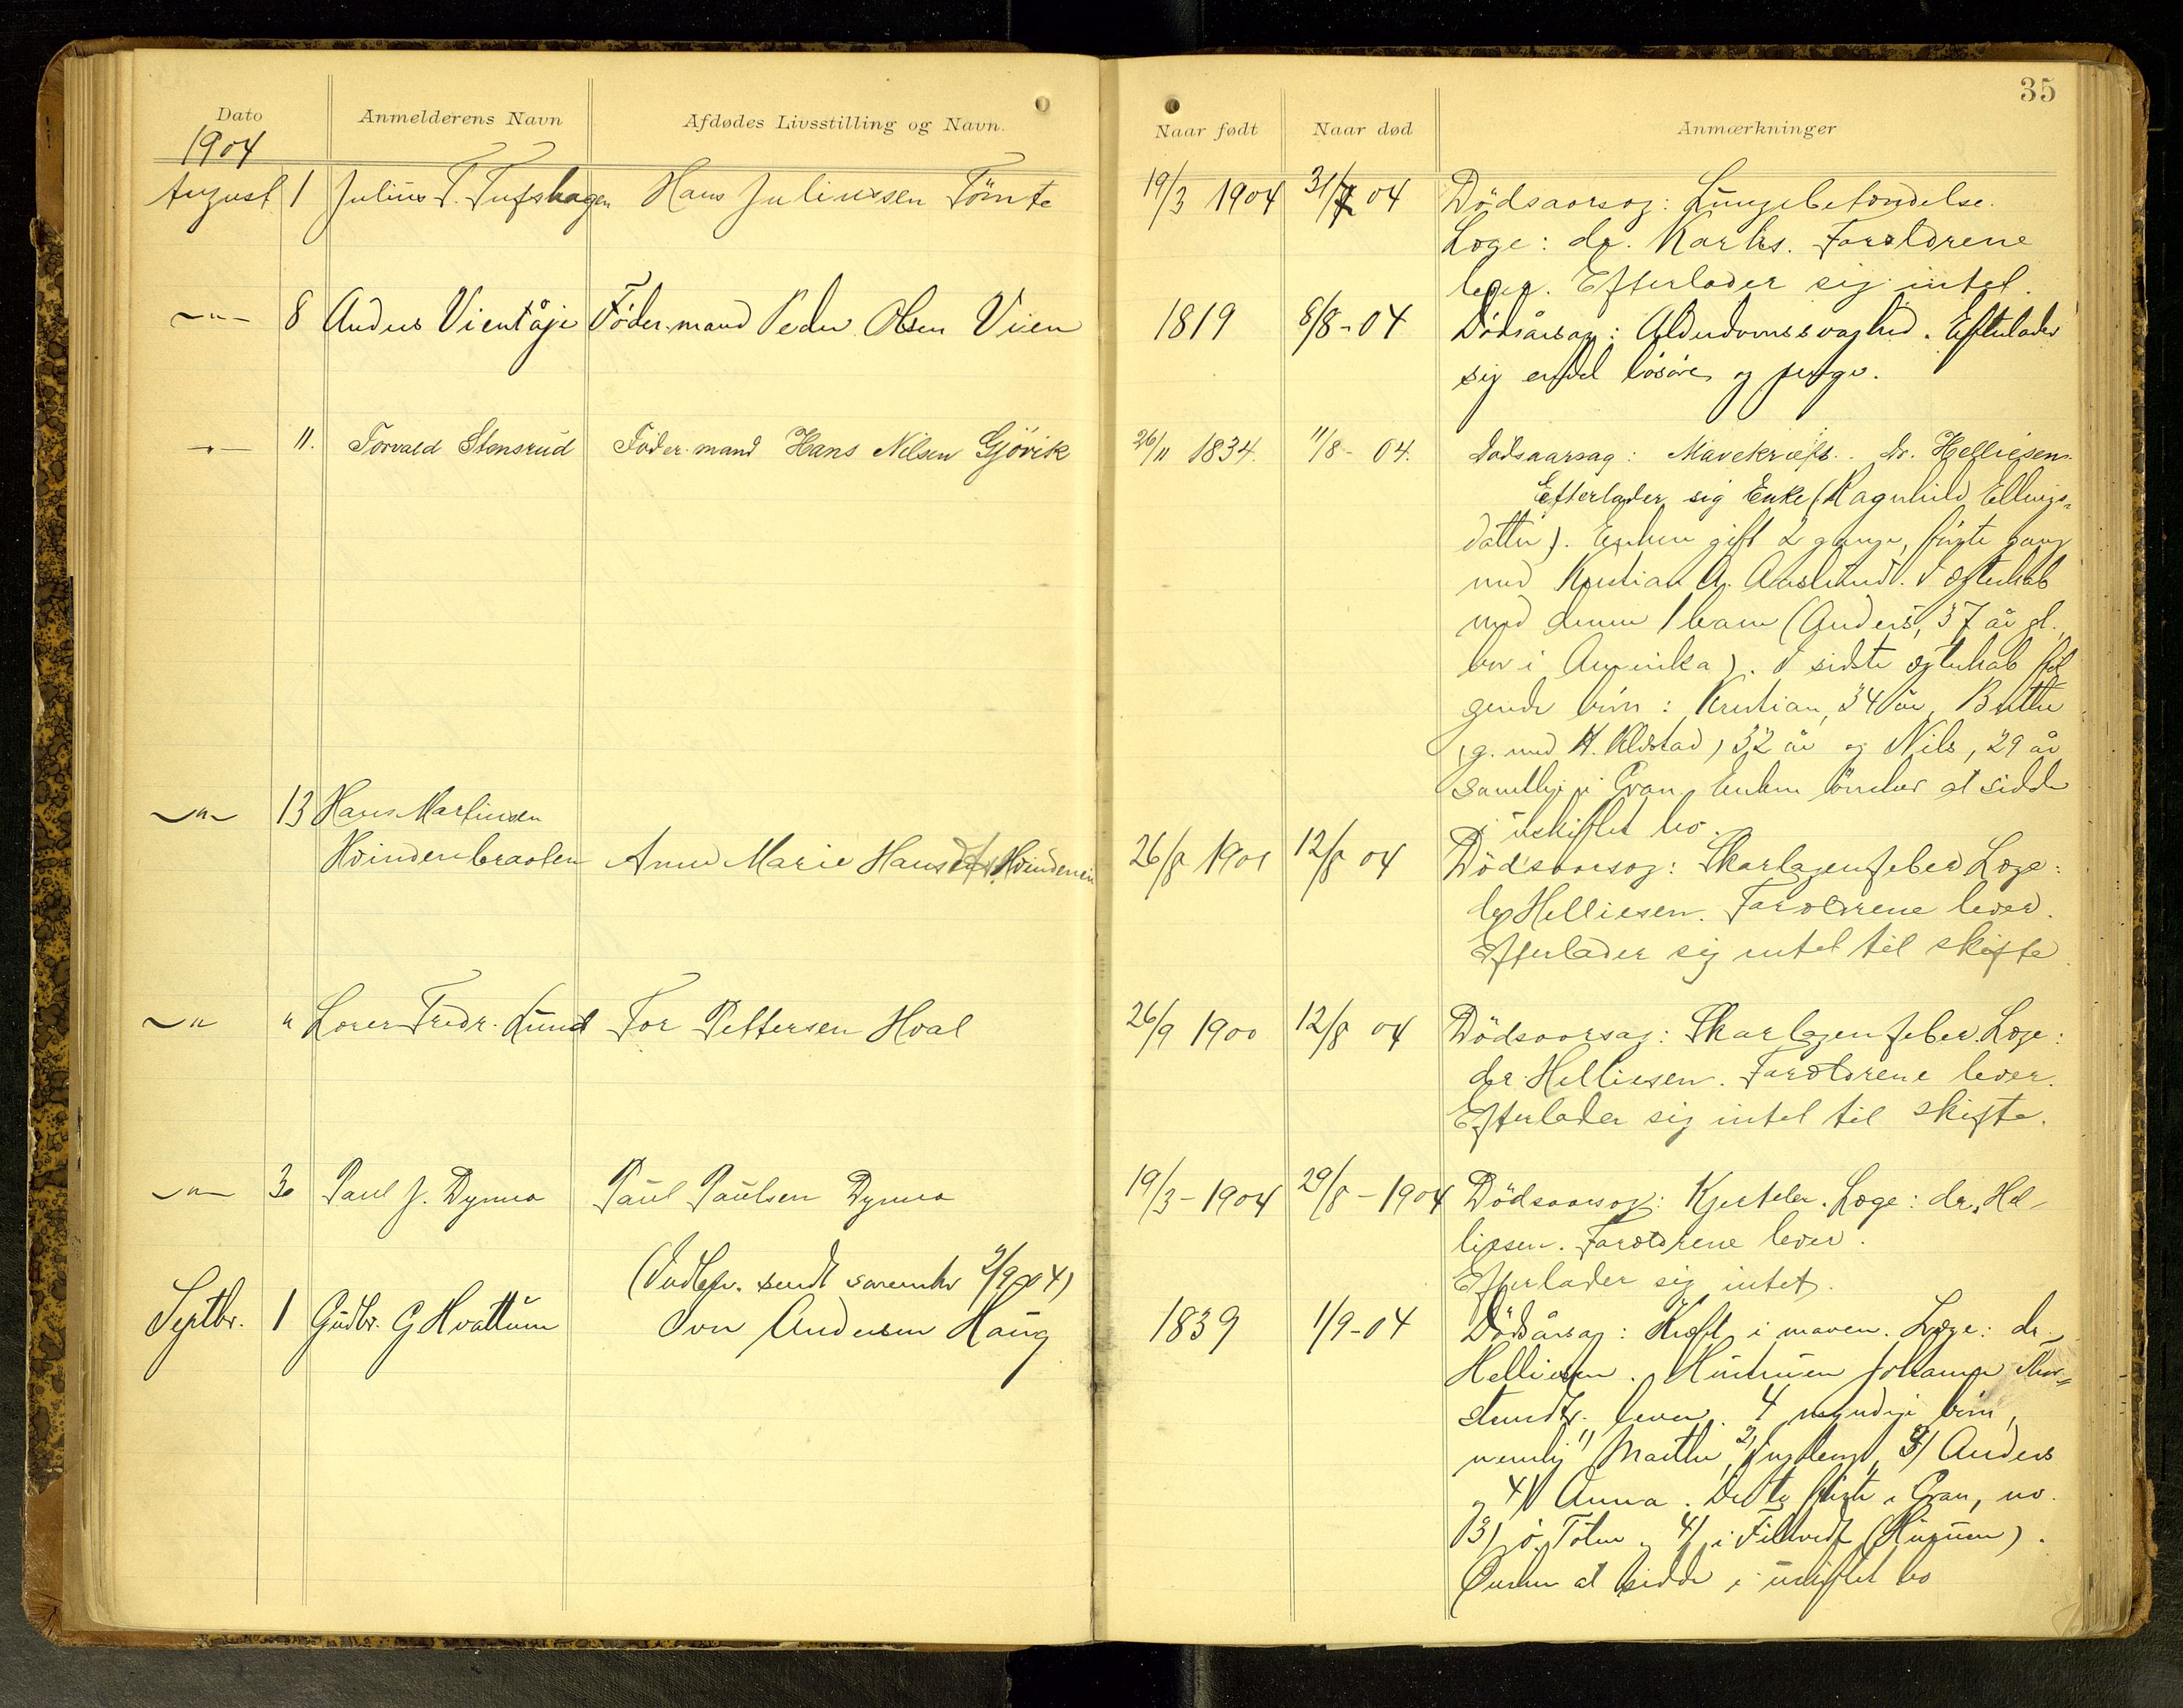 35
Dato
Anmelderens Navn
Afdødes Livsstilling og Navn.
Naar født
Naar død
Anmærkninger
1904
August 1 Julius T. Tufshagen Hans Juliussen Tömte 19/3 1904 31/7 04 Dödsaarsag: Lungebetændelse.
Læge: dr. Karhs. Forældrene
lever. Efterlader sig intet.
—"— 8 Anders Vientåje Föder.mand Peder Olsen Vien 1819 8/8-04 Dödsårsag: Alderdomssvaghed. Efterlader
sig endel lösöre og penge.
—"— 11. Torvald Stensrud Föder.mand Hans Nilsen Gjövik 26/11 1834. 11/8- 04. Dødsaarsag: Mavekræft. Dr. Helliesen.
Efterlader sig Enke (Ragnhild Ellings-
datter). Enken gift 2 gange, förste gang
med Kristian A. Aaslund. I ægteskab
med denne 1 barn (Anders, 37 år gl.,
bor i Amerika). I sidste ægteskab föl
gende börn: Kristian, 34 år, Berthe
(g. med H. Alostad) 32 år og Nils, 29 år
samtlige i Gran. Enken önsker at sidde
i uskiftet bo.
—"— 13 Hans Martinsen
Hvindenbraaten Anne Marie Hansdtr. Hvinden 26/8 1901 12/8 04 Dödsaarsag: Skarlagensfeber Læge:
dr Helliesen. Forældrene lever.
Efterlader sig intet til skifte.
—"— " Lorer Fredr. Lund Tor Pettersen Hval 26/9 1900 12/8 04 Dödsaarsag: Skarlagensfeber. Læge:
dr. Helliesen. Forældrene lever.
Efterlader sig intet til skifte.
—"— 30 Paul J. Dynna Paul Paulsen Dynna 19/3-1904 29/8-1904 Dödsaarsag: Kjertler. Læge: dr. Hel-
liesen. Forældrene lever.
Efterlader sig intet.
(Indber. sendt sorenskr 2/9 04)
Septbr. 1 Gudbr. G Hvattum Iver Andersen Haug 1839 1/9-04 Dödsårsag: Kræft i maven. Læge: dr.
Helliesen. Hustruen Johanne Thor-
stensdtr. lever. 4 myndige börn,
nemlig 1) Marthe, 2) Ingeborg, 3) Anders
og 4) Anna. De to förste i Gran, no.
3) i ö. Toten og 4) i Filtvedt (Hurum).
Önsker at sidde i uskiftet bo